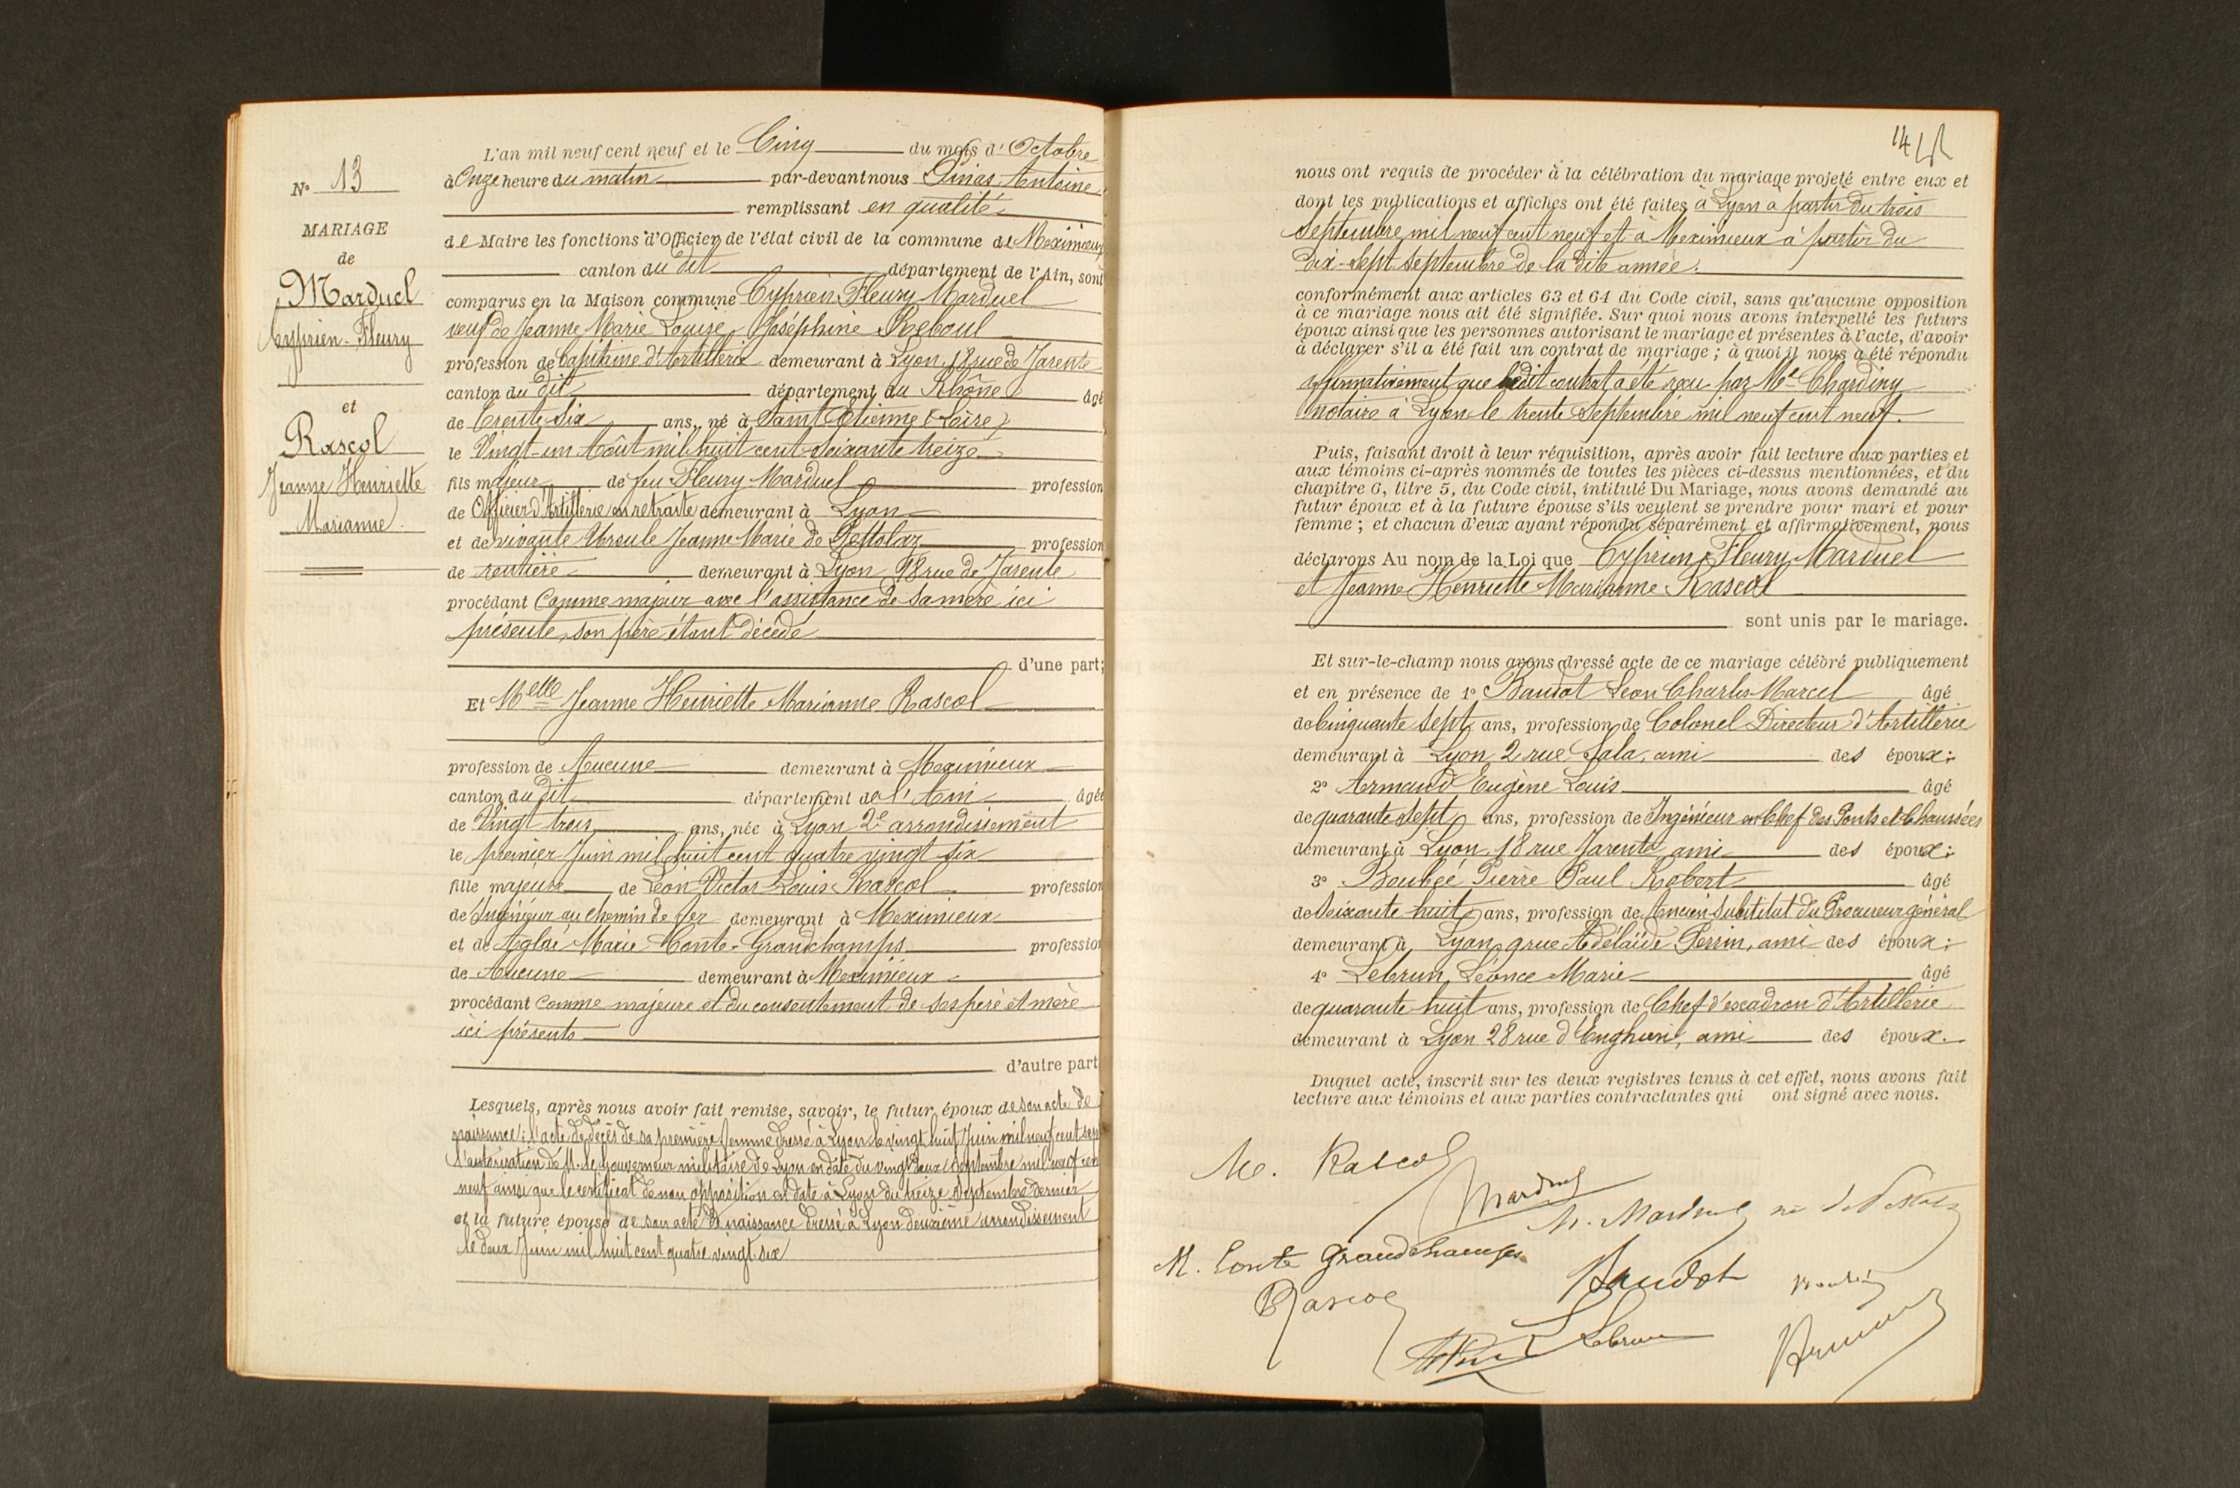 N° 13
MARIAGE
de
Marduel
Cyprien-Fleury
et
Rascol
Jeanne Henriette
Marianne.
L'an mil neuf cent neuf et le Cinq du mois d'Octobre
à Onze heure du matin par-devant nous Dinas Antoine
remplissant en qualité
de Maire les fonctions d'Officier de l'état civil de la commune de Meximieux
canton du dit département de l'Ain, sont
comparus en la Maison commune Cyprien Fleury Marduel
veuf de Jeanne Marie Louise Joséphine Reboul
profession de Capitaine d'Artillerie demeurant à Lyon 18 rue de Jarente
canton du dit département du Rhône âgé
de trente six ans, né à Saint Etienne (Loire)
le Vingt-un Août mil huit cent soixante treize
fils majeur de feu Fleury Marduel profession
de Officier d'Artillerie en retraite demeurant à Lyon
et de vivante Ursule Jeanne Marie de profession
de rentière demeurant à Lyon 18 rue de Jarente
procédant Comme majeur avec l'assistance de sa mère ici
présente, son père étant décédé
d'une part;
Et Melle Jeanne Henriette Marianne Rascol
profession de Aucune demeurant à Meximieux
canton du dit département de l'Ain âgée
de Vingt trois ans, née à Lyon 2e arrondissement
le premier Juin mil huit cent quatre vingt six
fille majeure de Léon Victor Louis Rascol profession
de Ingénieur au chemin de fer demeurant à Meximieux
et de Aglaé Marie Conte-Grandchamps profession
de Aucune demeurant à Meximieux
procédant Comme majeure et du consentement de ses père et mère
ici présents
d'autre part
Lesquels, après nous avoir fait remise, savoir, le futur époux de son acte de
naissance; l'acte de décès de sa première femme dressé à Lyon le vingt huit Juin mil neuf cent sept
l'autorisation de M. le Gouverneur militaire de Lyon en date du vingt deux septembre mil neuf cent
neuf ainsi que le certificat de non opposition en date à Lyon du treize septembre dernier
et la future épouse de son acte de naissance dressé à Lyon deuxième arrondissement
le deux Juin mil huit cent quatre vingt six
14
nous ont requis de procéder à la célébration du mariage projeté entre eux et
dont les publications et affiches ont été faites à Lyon à partir du trois
septembre mil neuf cent neuf et à Meximieux à partir du
dix-sept septembre de la dite année.
conformément aux articles 63 et 64 du Code civil, sans qu'aucune opposition
à ce mariage nous ait été signifiée. Sur quoi nous avons interpellé les futurs
époux ainsi que les personnes autorisant le mariage et présentes à l'acte, d'avoir
à déclarer s'il a été fait un contrat de mariage; à quoi il nous a été répondu
affirmativement que ledit contrat a été reçu par Me Chardiny
notaire à Lyon le trente septembre mil neuf cent neuf.
Puis, faisant droit à leur réquisition, après avoir fait lecture aux parties et
aux témoins ci-après nommés de toutes les pièces ci-dessus mentionnées, et du
chapitre 6, titre 5, du Code civil, intitulé Du Mariage, nous avons demandé au
futur époux et à la future épouse s'ils veulent se prendre pour mari et pour
femme; et chacun d'eux ayant répondu séparément et affirmativement, nous
déclarons Au nom de la Loi que Cyprien Fleury Marduel
et Jeanne Henriette Marianne Rascol
sont unis par le mariage.
Et sur-le-champ nous avons dressé acte de ce mariage célébré publiquement
et en présence de 1° Baudot Léon Charles Marcel âgé
de Cinquante sept ans, profession de Colonel Directeur d'Artillerie
demeurant à Lyon 2 rue Sala, ami des époux;
2° Armand Eugène Louis âgé
de quarante sept ans, profession de Ingénieur en Chef des Ponts et Chaussées
demeurant à Lyon 18 rue Jarente ami des époux;
3° Boubée Pierre Paul Robert âgé
de Soixante huit ans, profession de Ancien Substitut du Procureur général
demeurant à Lyon 9 rue Adélaïde Perrin, ami des époux;
4° Lebrun Léonce Marie âgé
de quarante huit ans, profession de Chef d'escadron d'Artillerie
demeurant à Lyon 28 rue d'Enghien, ami des époux.
Duquel acte, inscrit sur les deux registres tenus à cet effet, nous avons fait
lecture aux témoins et aux parties contractantes qui ont signé avec nous.
M. Rascol
Marduel
M. Marduel née de
M. Conte Grandchamps
Baudot
Rascol
Lebrun